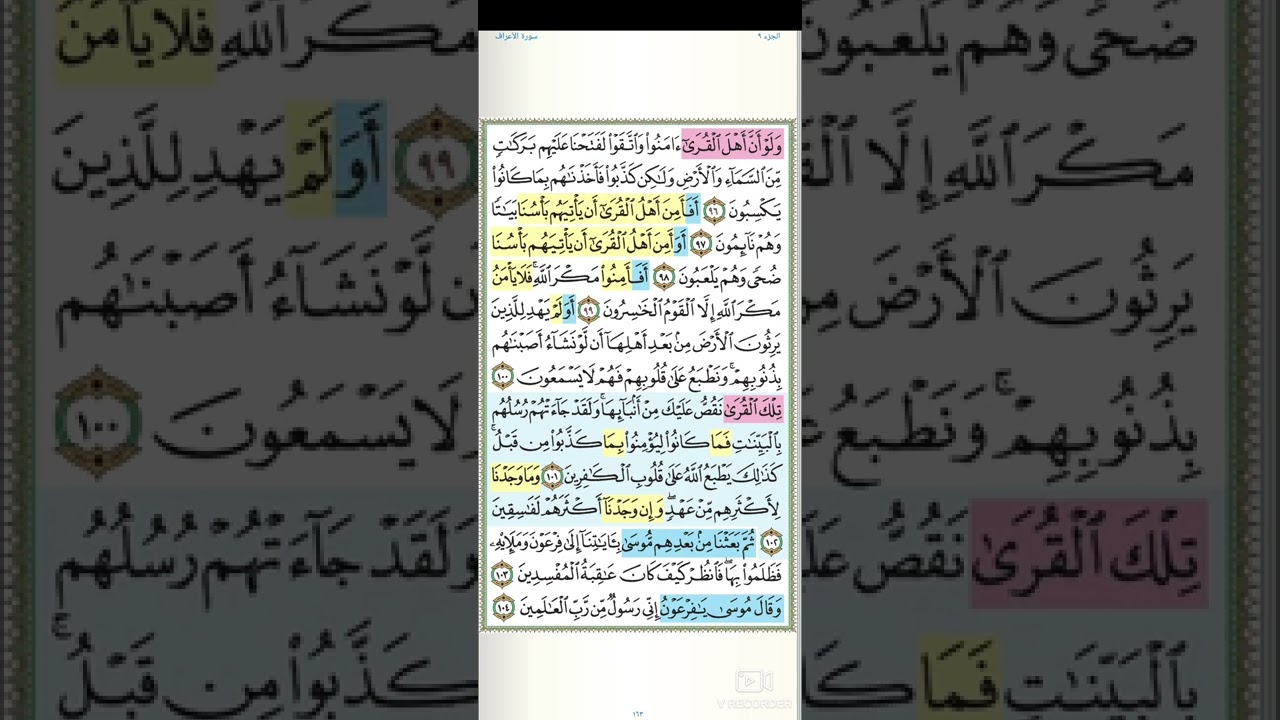 سورة الأعراف
الجزء ٩
وَلَوْ أَنَّ أَهْلَ ٱلْقُرَىٰٓ ءَامَنُوا۟ وَٱتَّقَوْا۟ لَفَتَحْنَا عَلَيْهِم بَرَكَٰتٍ
مِّنَ ٱلسَّمَآءِ وَٱلْأَرْضِ وَلَٰكِن كَذَّبُوا۟ فَأَخَذْنَٰهُم بِمَا كَانُوا۟
يَكْسِبُونَ ٩٦ أَفَأَمِنَ أَهْلُ ٱلْقُرَىٰٓ أَن يَأْتِيَهُم بَأْسُنَا بَيَٰتًا
وَهُمْ نَآئِمُونَ ٩٧ أَوَأَمِنَ أَهْلُ ٱلْقُرَىٰٓ أَن يَأْتِيَهُم بَأْسُنَا
ضُحًى وَهُمْ يَلْعَبُونَ ٩٨ أَفَأَمِنُوا۟ مَكْرَ ٱللَّهِ ۚ فَلَا يَأْمَنُ
مَكْرَ ٱللَّهِ إِلَّا ٱلْقَوْمُ ٱلْخَٰسِرُونَ ٩٩ أَوَلَمْ يَهْدِ لِلَّذِينَ
يَرِثُونَ ٱلْأَرْضَ مِنۢ بَعْدِ أَهْلِهَآ أَن لَّوْ نَشَآءُ أَصَبْنَٰهُم
بِذُنُوبِهِمْ ۚ وَنَطْبَعُ عَلَىٰ قُلُوبِهِمْ فَهُمْ لَا يَسْمَعُونَ ١٠٠
تِلْكَ ٱلْقُرَىٰ نَقُصُّ عَلَيْكَ مِنْ أَنۢبَآئِهَا ۚ وَلَقَدْ جَآءَتْهُمْ رُسُلُهُم
بِٱلْبَيِّنَٰتِ فَمَا كَانُوا۟ لِيُؤْمِنُوا۟ بِمَا كَذَّبُوا۟ مِن قَبْلُ ۚ
كَذَٰلِكَ يَطْبَعُ ٱللَّهُ عَلَىٰ قُلُوبِ ٱلْكَٰفِرِينَ ١٠١ وَمَا وَجَدْنَا
لِأَكْثَرِهِم مِّنْ عَهْدٍ ۖ وَإِن وَجَدْنَآ أَكْثَرَهُمْ لَفَٰسِقِينَ
١٠٢ ثُمَّ بَعَثْنَا مِنۢ بَعْدِهِم مُّوسَىٰ بِـَٔايَٰتِنَآ إِلَىٰ فِرْعَوْنَ وَمَلَإِي۟هِۦ
فَظَلَمُوا۟ بِهَا ۖ فَٱنظُرْ كَيْفَ كَانَ عَٰقِبَةُ ٱلْمُفْسِدِينَ ١٠٣
وَقَالَ مُوسَىٰ يَٰفِرْعَوْنُ إِنِّى رَسُولٌ مِّن رَّبِّ ٱلْعَٰلَمِينَ ١٠٤
V RECORDER
١٦٣